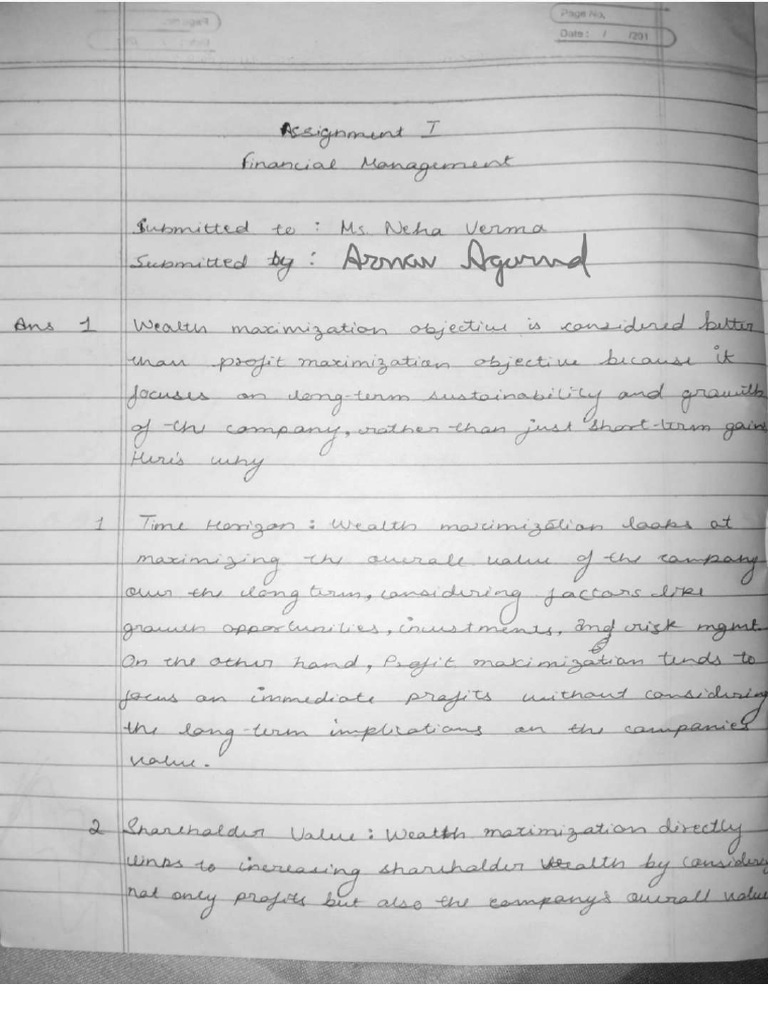 Page No.
Date: / /201
Assignment I
Financial Management
Submitted to : Ms. Neha Verma
Submitted by : Arnav Agarwal
Ans 1 Wealth maximization objective is considered better
than profit maximization objective because it
focuses on long-term sustainability and growth
of the company, rather than just short-term gains
Here's why
1 Time Horizon : Wealth maximization looks at
maximizing the overall value of the company
over the long term, considering factors like
growth opportunities, investments, and risk mgmt.
On the other hand, Profit maximization tends to
focus on immediate profits without considering
the long-term implications on the companies
value.
2 Shareholder Value : Wealth maximization directly
links to increasing shareholder wealth by considering
not only profits but also the company's overall value